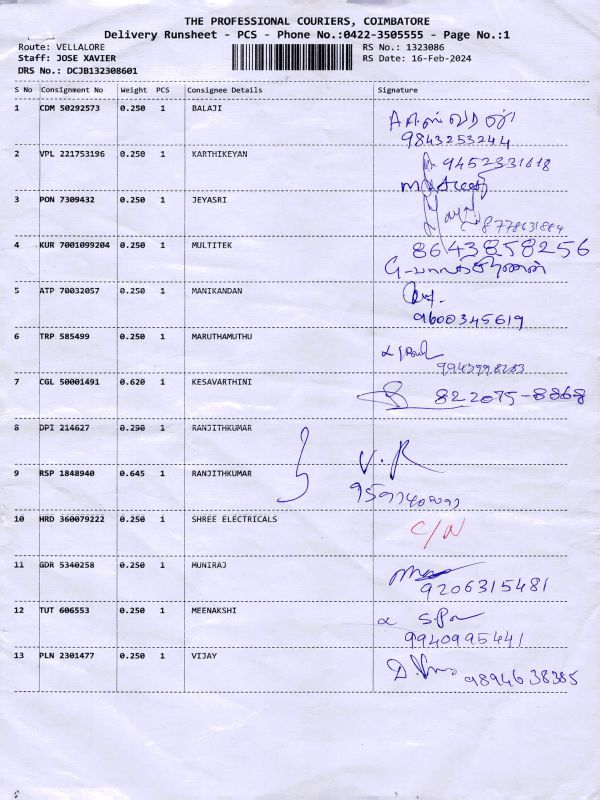 THE PROFESSIONAL COURIERS, COIMBATORE
Delivery Runsheet - PCS - Phone No.:0422-3505555 - Page No.:1
Route: VELLALORE RS No.: 1323086
Staff: JOSE XAVIER RS Date: 16-Feb-2024
DRS No.: DCJB132308601
S No Consignment No Weight PCS Consignee Details Signature
1 CDM 50292573 0.250 1 BALAJI
9843253244
2 VPL 221753196 0.250 1 KARTHIKEYAN 9452331618
3 PON 7309432 0.250 1 JEYASRI
8778631884
4 KUR 7001099204 0.250 1 MULTITEK 8643858256
5 ATP 70032057 0.250 1 MANIKANDAN
9600345619
6 TRP 585499 0.250 1 MARUTHAMUTHU
7 CGL 50001491 0.620 1 KESAVARTHINI 822075-8868
8 DPI 214627 0.290 1 RANJITHKUMAR
V.R
9 RSP 1848940 0.645 1 RANJITHKUMAR
10 HRD 360079222 0.250 1 SHREE ELECTRICALS C/N
11 GDR 5340258 0.250 1 MUNIRAJ
9206315481
12 TUT 606553 0.250 1 MEENAKSHI
9940995441
13 PLN 2301477 0.250 1 VIJAY
9894638385